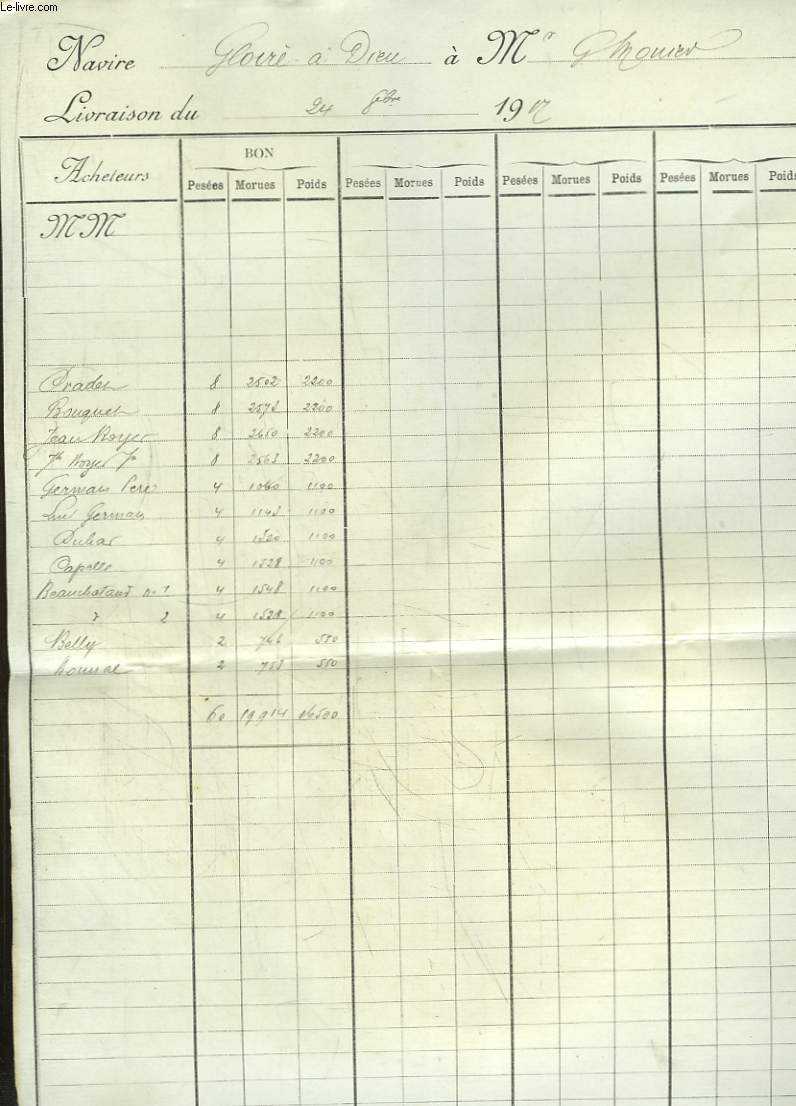 Le-livre.com
Navire Gloire à Dieu à Mr G Monier
Livraison du 24 8bre 1917
Acheteurs BON
Pesées Morues Poids Pesées Morues Poids Pesées Morues Poids Pesées Morues Poids
MM
Pradel 8 2502 2200
Bouquet 8 2200
Jean Royer 8 2450 2200
Royer 8 2200
Germain Père 4 1040 1100
Germain 4 1143 1100
Duhar 4 1520 1100
Capelle 4 1528 1100
Beauchataud no 1 4 1548 1100
" 2 4 1528 1100
Belly 2 550
2 753 550
60 19914 16500